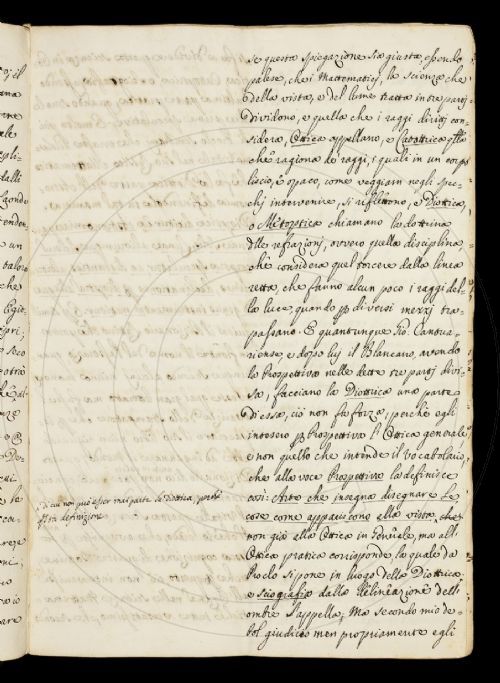 se questa spiegazione sia giusta, essendo
palese, che i Mattematici, la scienza che
della vista, e del lume tratta in tre parti
dividono, e quella che i raggi diritti con-
siderа, Ottica appellano, e Catottrica qlla
che ragiona de raggi, i quali in un corpo
liscio, e opaco, come veggiam negli spec-
chj intervenire, si riflettono, e Diottrica,
o chiamano la dottrina
delle refrazionj, ovvero quella disciplina
che considera quel torcere dalla linea
retta, che fanno alcun poco i raggi del-
la luce, quando p diversi mezzj tra-
passano. E quantunque Gio. Cantua-
riense, e dopo luj il Blancano, avendo
la Prospettiva nelle dette tre partj divi-
sa, facciano la Diottrica una parte
di essa, ciò non fa forza, perche egli
intesero p Prospettiva l'Ottica generale
e non quello che intende il Vocabolario,
che alla voce Prospettiva la definisce
così: Arte che insegna disegnare le
cose come appariscono alla vista, che
non già alla Ottica in generale, ma all'
Ottica pratica corrisponde, la quale da
Proclo si pone in luogo della Diottrica
e sciografia dalla delineazione dell'
ombre s'appella, Ma secondo mio de-
bol giudizio men propriamente egli
di cui non può esser mai parte la Diottrica, presa
definizione